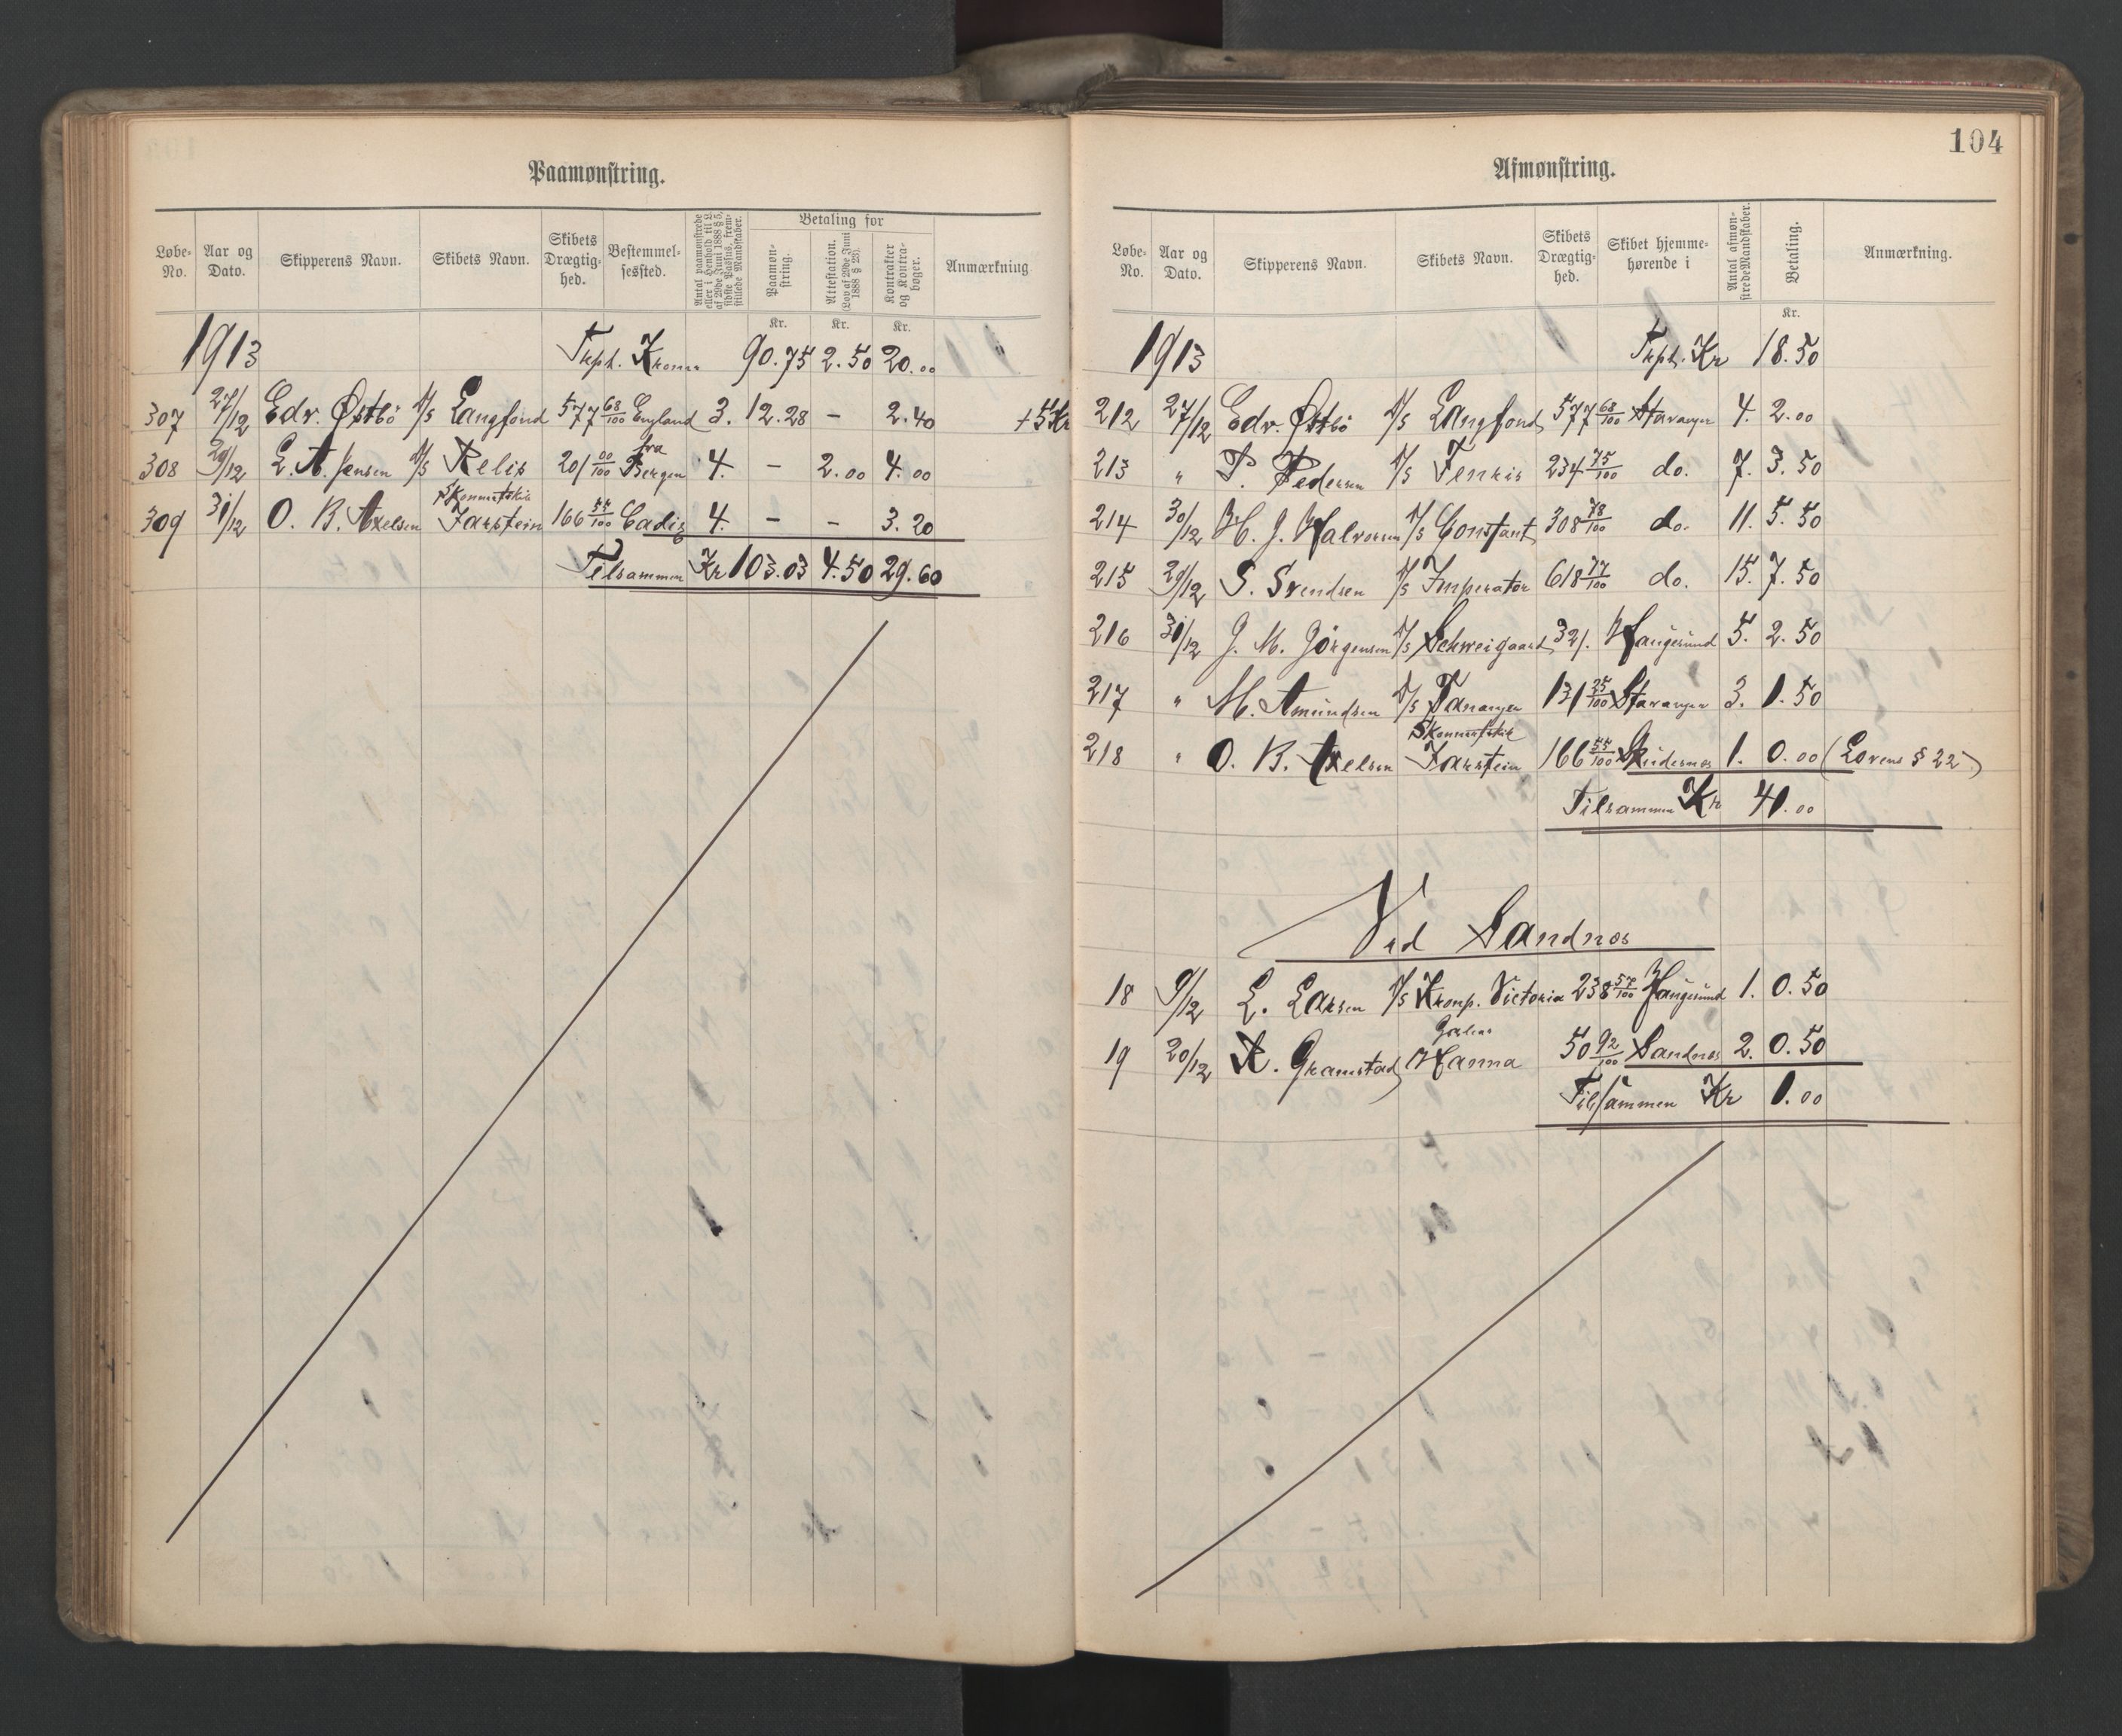 Paamønstring.
Løbe-No. Aar og Dato. Skipperens Navn. Skibets Navn. Skibets Drægtighed. Bestemmelsessted. Antal paamønstrede eller i Henhold til L. af 29de Juni 1888 § 5, sidste Passus, fremstillede Mandskaber. Betaling for Paamønstring. Attestation. (Lov af 29de Juni 1888 § 28). Kontrakter og Kontrabøger. Anmærkning.
Kr. Kr. Kr.
1913 Trpt. Kroner 90.75 2.50 20.00
307 27/12 Edv. Østbö D/S Langfond 577 68/100 England 3. 12.28 - 2.40 + 5 Kr
308 29/12 L. A. Jensen D/S Relis 201 00/100 fra Bergen 4. - 2.00 4.00
309 31/12 O. B. Axelsen Skonnertskib Jarstein 166 55/100 Cadiz 4. - - 3.20
Tilsammen Kr 103.03 4.50 29.60
104
Afmønstring.
Løbe-No. Aar og Dato. Skipperens Navn. Skibets Navn. Skibets Drægtighed. Skibet hjemmehørende i Antal afmønstrede Mandskaber. Betaling. Anmærkning.
Kr.
1913 Trpt. Kr 18.50
212 27/12 Edv. Østbö D/S Langfond 577 68/100 Stavanger 4. 2.00
213 " P. Pedersen D/S Fenris 234 75/100 do. 7. 3.50
214 30/12 H. J. Halvorsen D/S Constant 308 78/100 do. 11. 5.50
215 29/12 S. Svendsen D/S Imperator 618 77/100 do. 15. 7.50
216 31/12 J. M. Jörgensen D/S Schweigaard 321. Haugesund 5. 2.50
217 " M. Amundsen D/S Tananger 131 25/100 Stavanger 3. 1.50
218 " O. B. Axelsen Skonnertskib Jarstein 166 55/100 Skudesnes 1. 0.00 (Lovens § 22)
Tilsammen Kr 41.00
Ved Sandnes
18 9/12 L. Larsen D/S Kronp. Victoria 238 57/100 Haugesund 1. 0.50
19 20/12 R. Gramstad Galeas Hanna 50 92/100 Sandnes 2. 0.50
Tilsammen Kr 1.00